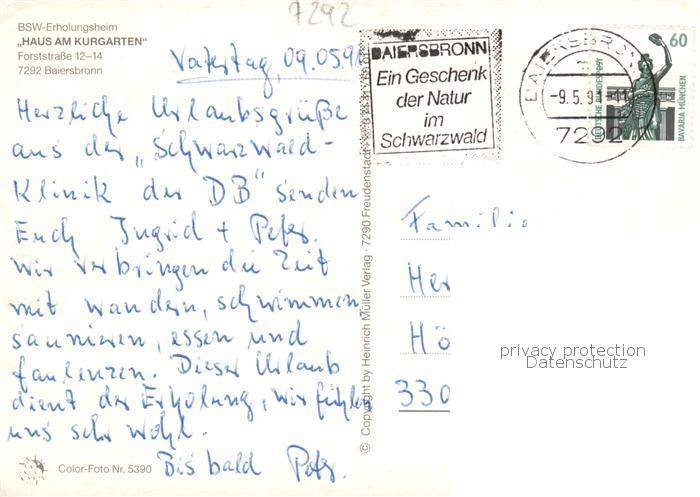 7292
BSW-Erholungsheim
„HAUS AM KURGARTEN"
Forststraße 12–14
7292 Baiersbronn
Vatertag, 09.0591
Herzliche Urlaubsgrüße
aus der „Schwarzwald-
Klinik der DB" senden
Euch Ingrid + Peter.
Wir verbringen die Zeit
mit wandern, schwimmen,
saunieren, essen und
faulenzen. Dieser Urlaub
dient der Erholung, wir fühlen
uns sehr wohl.
Bis bald Peter.
Color-Foto Nr. 5390
© Copyright by Heinrich Müller Verlag · 7290 Freudenstadt
BAIERSBRONN
Ein Geschenk
der Natur
im
Schwarzwald
BAIERSBRONN
-9.5.91-11
7292
60
DEUTSCHE BUNDESPOST
BAVARIA MÜNCHEN
Familie
Her
Hö
330
privacy protection
Datenschutz